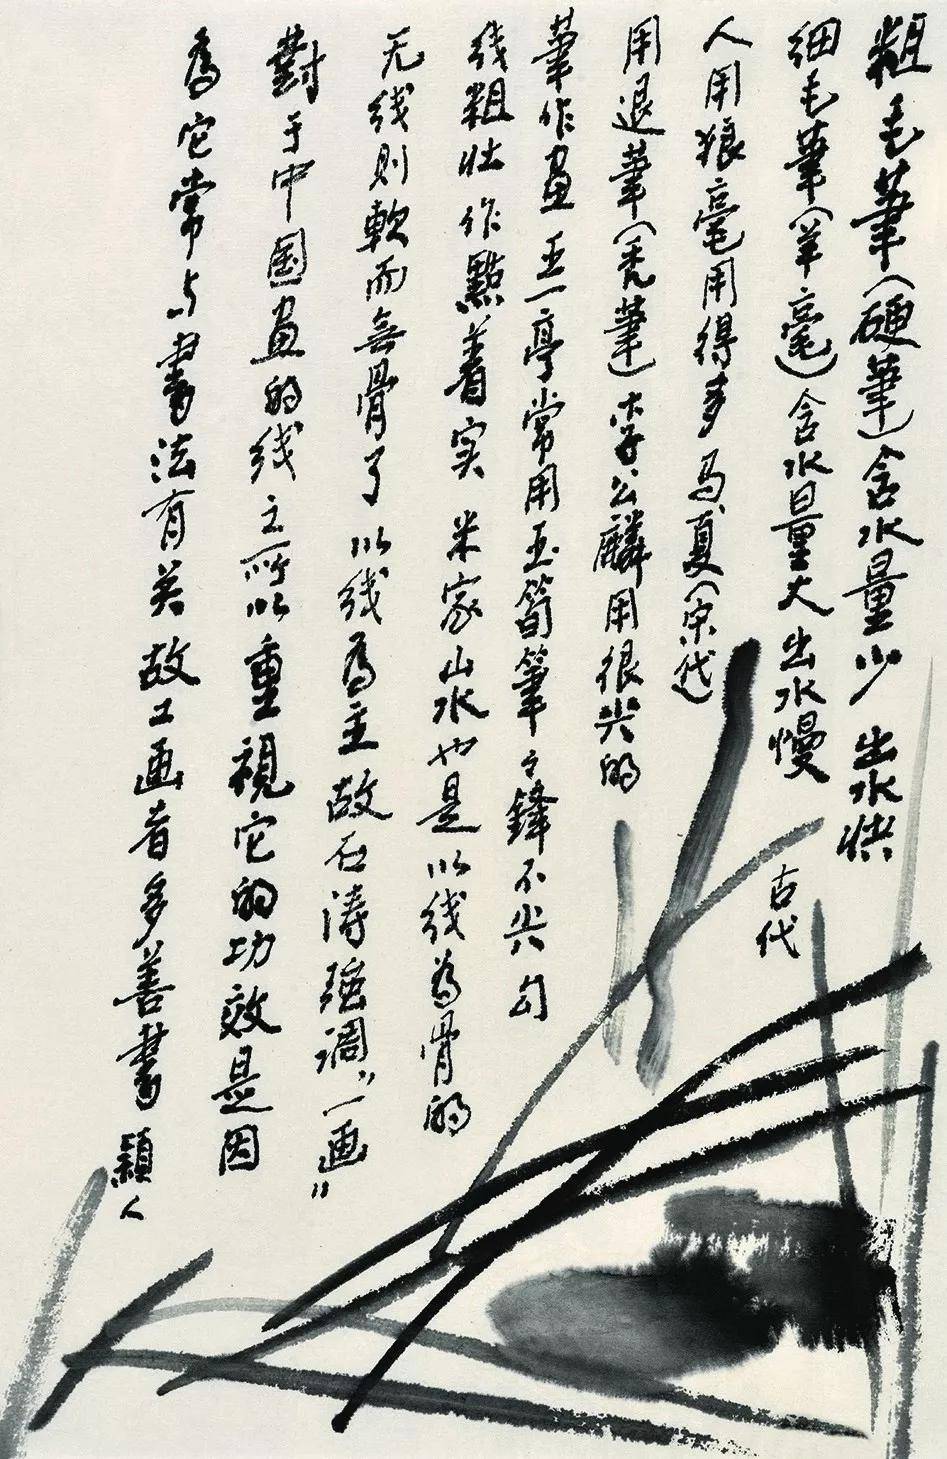 粗毛筆(硬筆)含水量少 出水快
细毛筆(羊毫)含水量大 出水慢 古代
人用狼毫用得多 马、夏(宋代)
用退筆(秃筆)李公麟用很尖的
筆作畫 王一亭常用玉筍筆 筆鋒不尖 勾
线粗壮 作點着实 米家山水也是以线為骨的
无线则軟而無骨了 以线為主 故石涛强调"一画"
對于中国畫的线之所以重視它的功效是因
為它常与書法有关 故工画者多善書 穎人